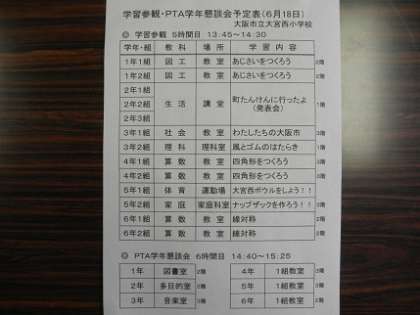 学習参観・PTA学年懇談会予定表(6月18日)
大阪市立大宮西小学校
◎ 学習参観 5時間目 13:45~14:30
学年・組 教科 場所 学習内容
1年1組 図工 教室 あじさいをつくろう 2階
1年2組 図工 教室 あじさいをつくろう 2階
2年1組
2年2組 生活 講堂 町たんけんに行ったよ(発表会) 1階
2年3組
3年1組 社会 教室 わたしたちの大阪市 3階
3年2組 理科 理科室 風とゴムのはたらき
4年1組 算数 教室 四角形をつくろう
4年2組 算数 教室 四角形をつくろう
5年1組 体育 運動場 大宮西ボウルをしよう!!
5年2組 家庭 家庭科室 ナップザックを作ろう!!
6年1組 算数 教室 線対称
6年2組 算数 教室 線対称
◎ PTA学年懇談会 6時間目 14:40~15:25
1年 図書室 4年 1組教室
2年 多目的室 5年 1組教室
3年 音楽室 6年 1組教室